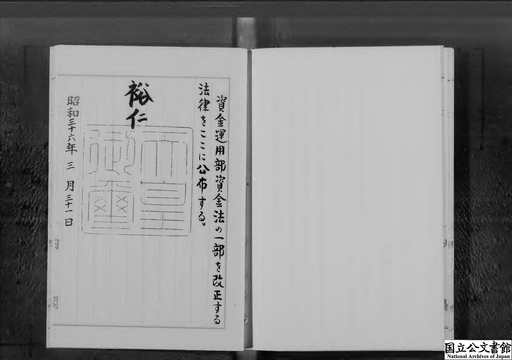 資金運用部資金法の一部を改正する
法律をここに公布する。
裕仁
天皇御璽
昭和三十六年三月三十一日
国立公文書館
National Archives of Japan